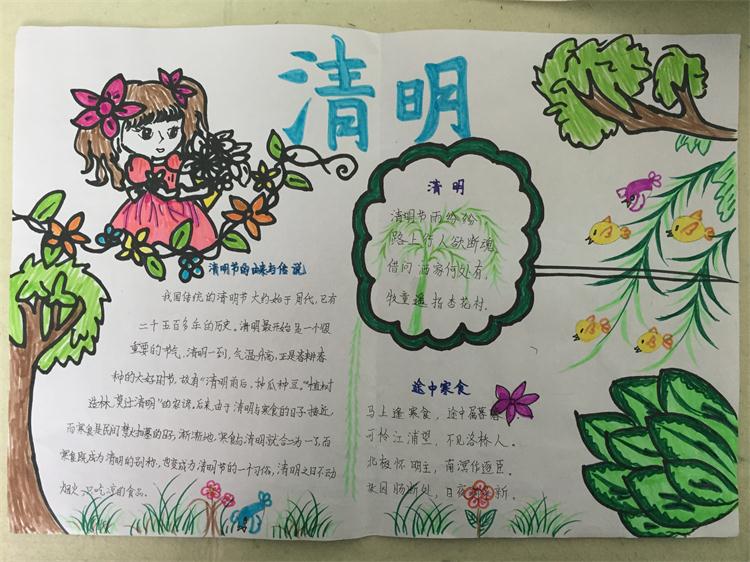 清明
清明节的由来与传说
我国传统的清明节大约始于周代,已有
二十五百多年的历史。清明最开始是一个很
重要的节气,清明一到,气温升高,正是春耕春
种的大好时节,故有“清明前后,种瓜种豆。”“植树
造林,莫过清明”的农谚。后来由于清明与寒食的日子接近,
而寒食是民间禁火扫墓的日子,渐渐地,寒食与清明就合二为一了,而
寒食既成为清明的别称,也变成为清明节的一个习俗,清明之日不动
烟火,只吃凉的食品。
清明
清明节雨纷纷
路上行人欲断魂
借问酒家何处有,
牧童遥指杏花村.
途中寒食
马上逢寒食,途中属暮春
可怜江浦望,不见洛桥人。
北极怀明主,南溟作逐臣。
故园肠断处,日夜新。